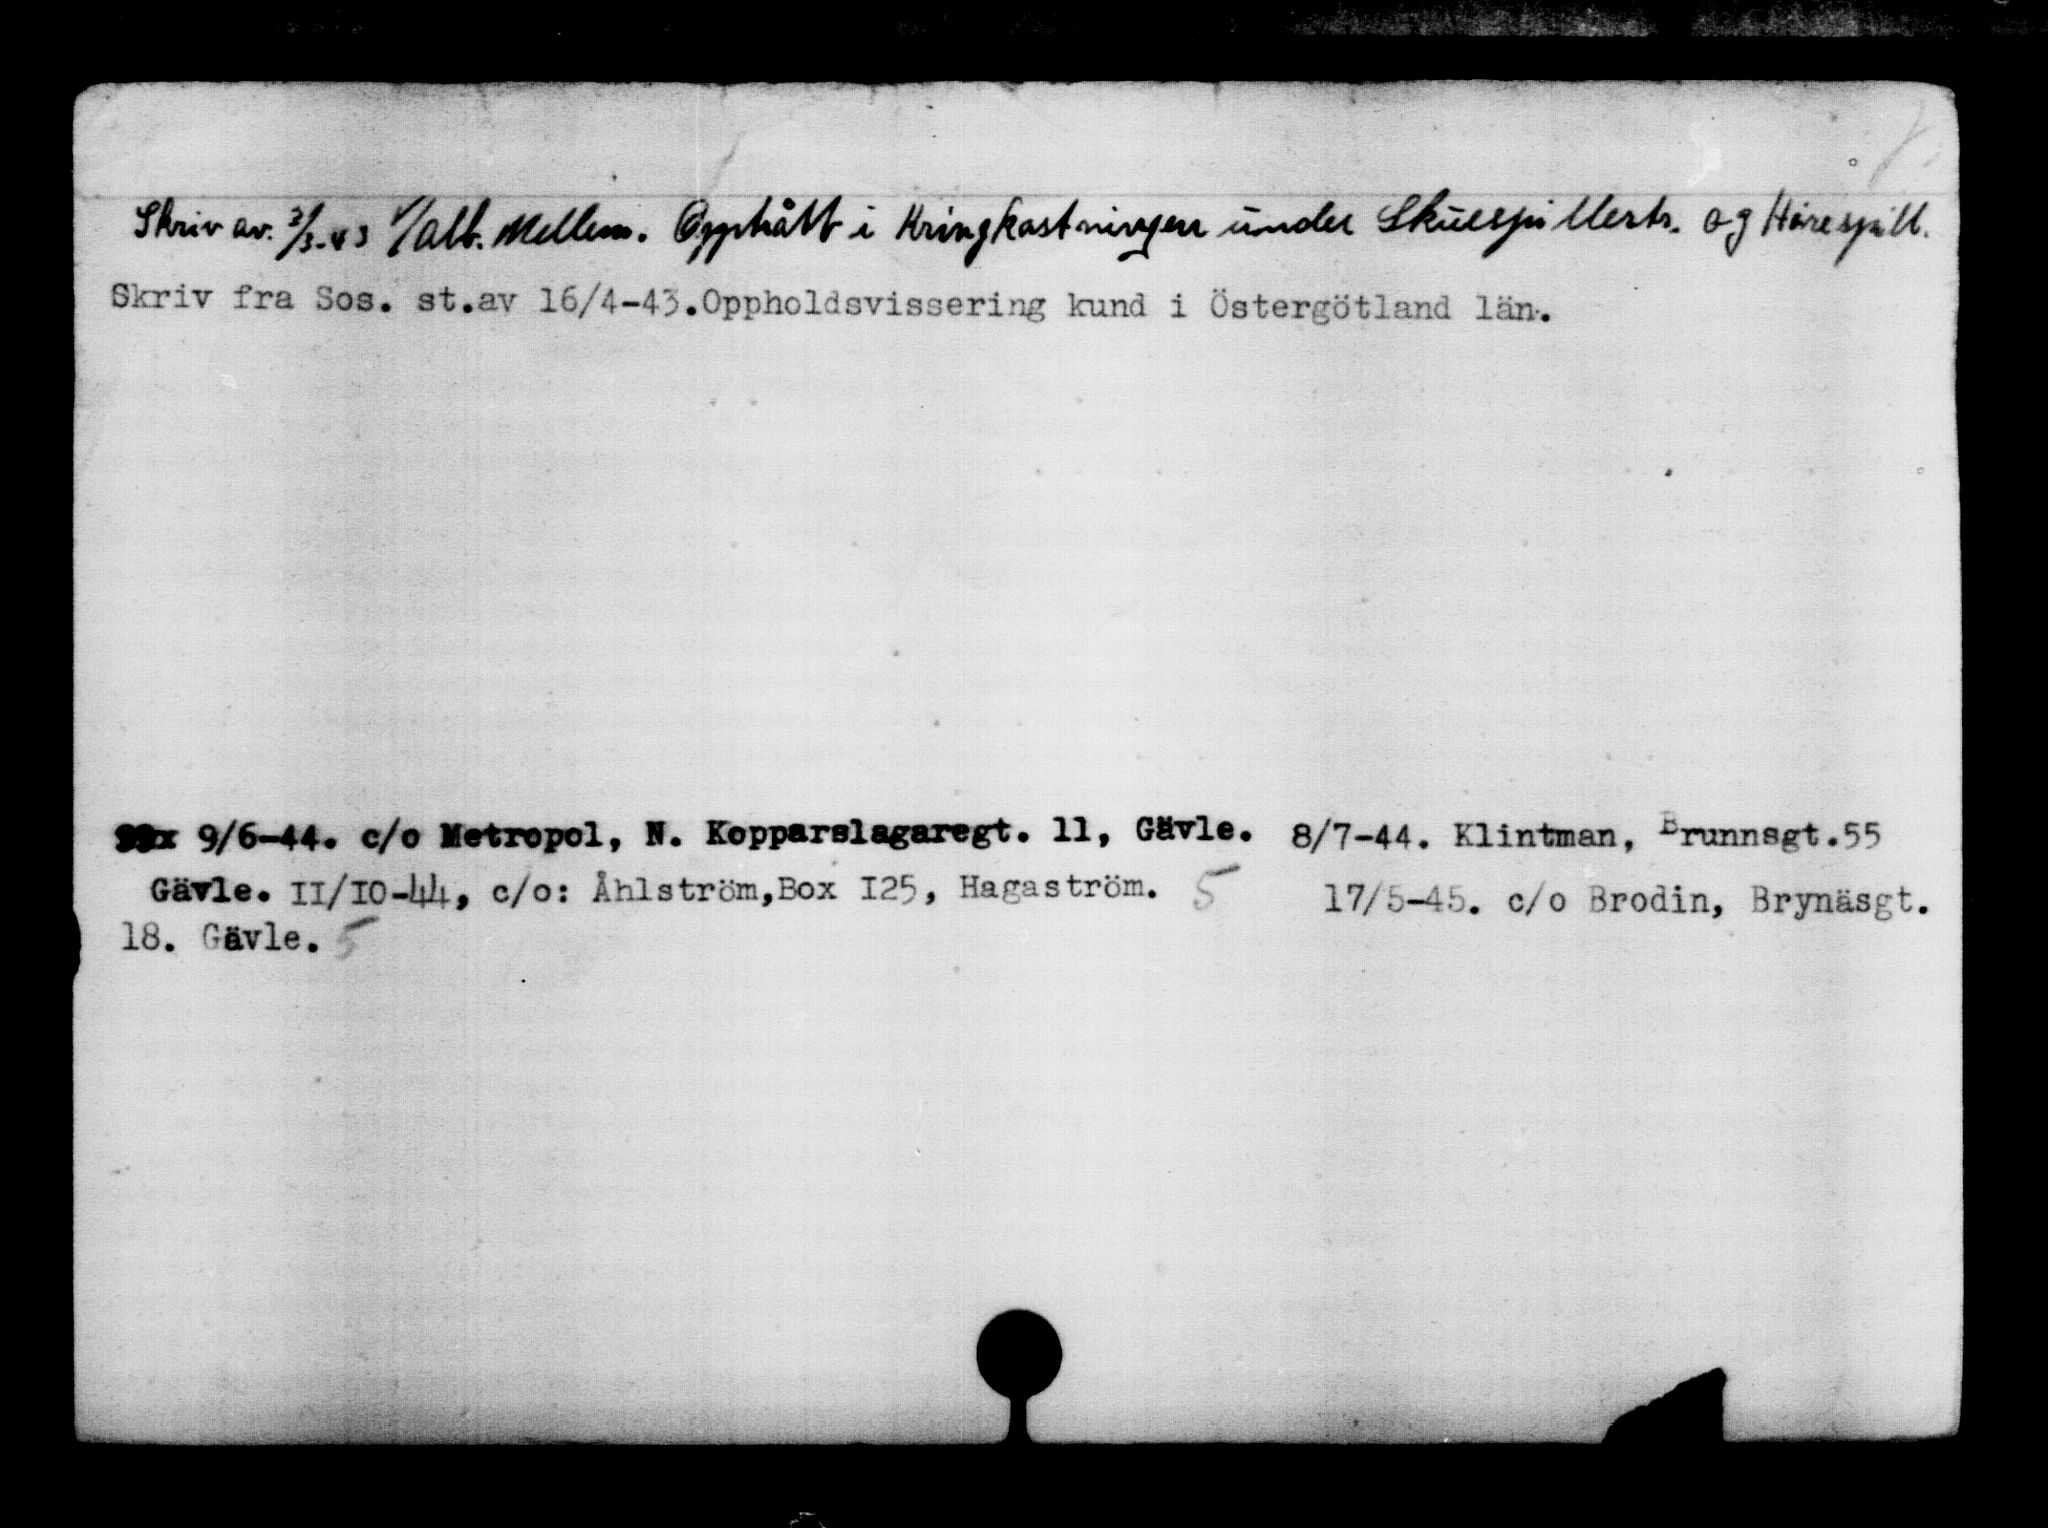 Skriv av. 3/3-43 f/Alb. Mellem. Opptrått i Kringkastningen under Skuespillerstr. og Hørespill.
Skriv fra Sos. st.av 16/4-43.Oppholdsvissering kund i Östergötland län.
9/6-44. c/o Metropol, N. Kopparslagaregt. 11, Gävle. 8/7-44. Klintman, Brunnsgt.55
Gävle. II/IO-44, c/o: Åhlström,Box I25, Hagaström. 5 17/5-45. c/o Brodin, Brynäsgt.
18. Gävle. 5